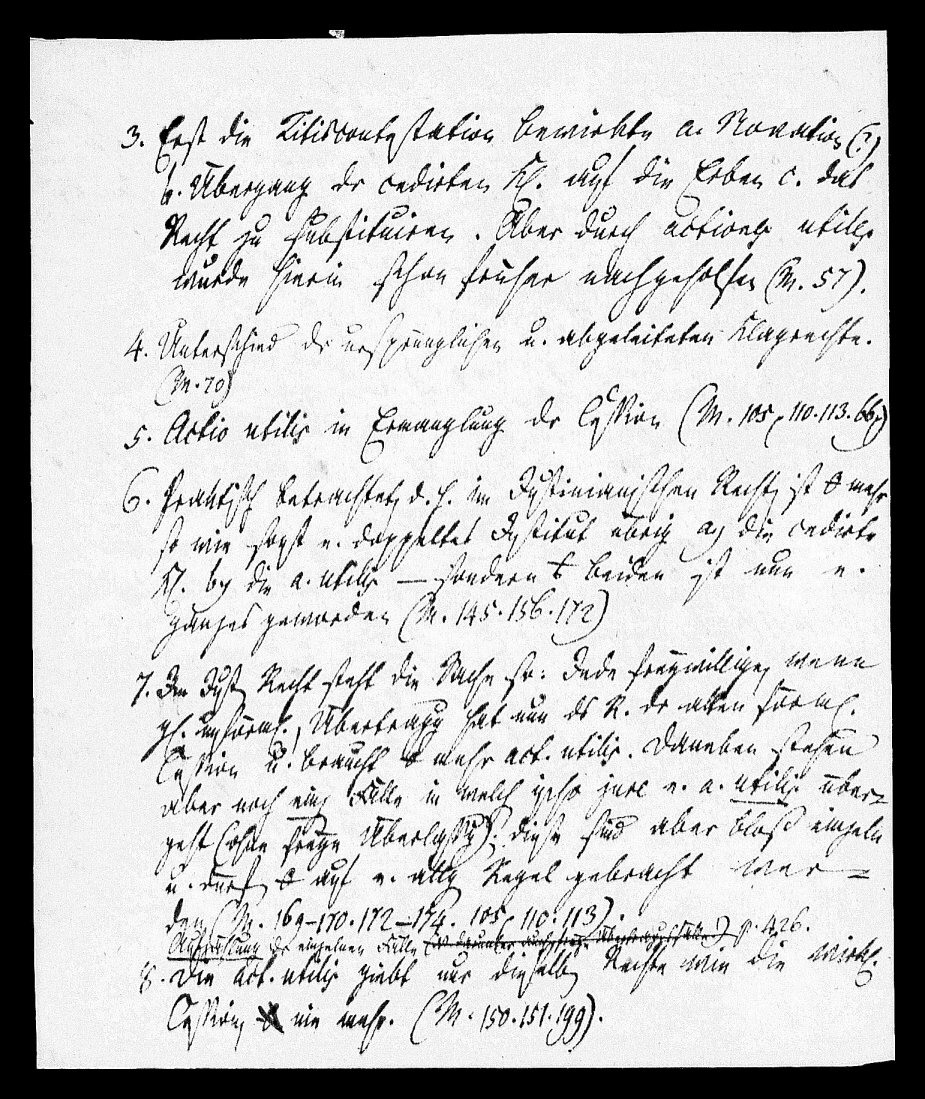 3. Erst die Litiscontestation bewirkte a. Novation (?)
b. Übergang der cedirten Kl. auf die Erben c. das
Recht zu substituiren. Aber durch actiones utiles
wurde hierin schon früher nachgeholfen (M. 57).
4. Unterschied der ursprünglichen u. abgeleiteten Klagrechte.
(M. 70)
5. Actio utilis in Ermanglung der Cession (M. 105, 110. 113. 66)
6. Praktisch betrachtet, d. h. im Justinianischen Recht, ist mehr
so wie sonst e. doppeltes Institut übrig a) die cedirte
Kl. b) die a. utilis – sondern beiden ist nun e.
ganzes geworden (M. 145. 156. 172)
7. Im Just. Recht steht die Sache so: Jede freywillige, wenn
gl. unförml., Übertragg hat nun ds R. der alten förml.
Cession u. braucht mehr act. utilis. Daneben stehen
aber noch einz. Fälle in welch ipso jure e. a. utilis über-
geht (ohne freye Überlassg); diese sind aber bloß einzeln
u. darf auf e. allg Regel gebracht wer-
den (M. 169–170. 172–174. 105, 110. 113).
Aufzählung der einzelnen Fälle p. 426.
8. Die act. utilis giebt nur dieselben Rechte wie die wirkl.
Cession, nie mehr. (M. 150. 151. 199).